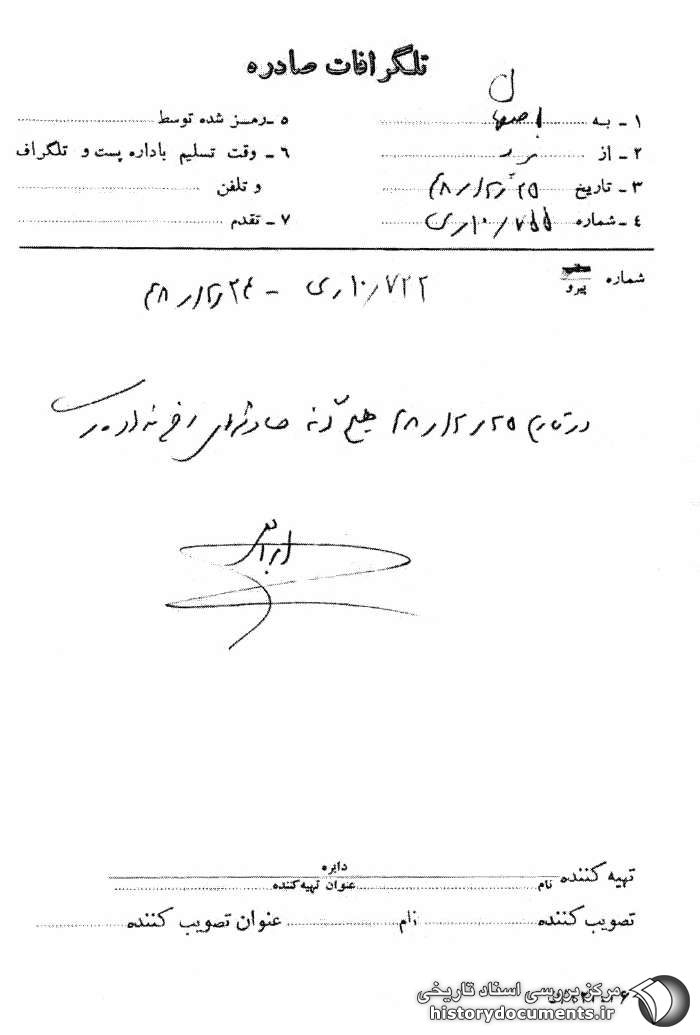 تلگرافات صادره
۱ ـ به اصفهان
۲ ـ از یزد
۳ ـ تاریخ ۲۵/۱۲/۴۸
٤ ـ شماره ۷۵۵/۱۰ ری
۵ ـ رمز شده توسط
٦ ـ وقت تسلیم باداره پست و تلگراف
و تلفن
۷ ـ تقدم
شماره پیرو ۷۲۲/۱۰ ری - ۲۴/۱۲/۴۸
در تاریخ ۲۵/۱۲/۴۸ هیچ گونه حادثه‌ای رخ نداده
تهیه کننده نام عنوان تهیه کننده دایره
تصویب کننده نام عنوان تصویب کننده
مرکز بررسی اسناد تاریخی
historydocuments.ir